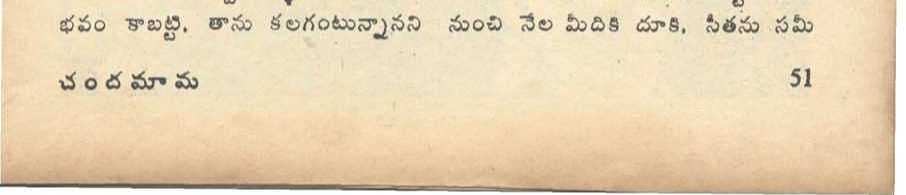 భవం కాబట్టి, తాను కలగంటున్నానని నుంచి నేల మీదికి దూకి, సీతను సమీ
చందమామ 51